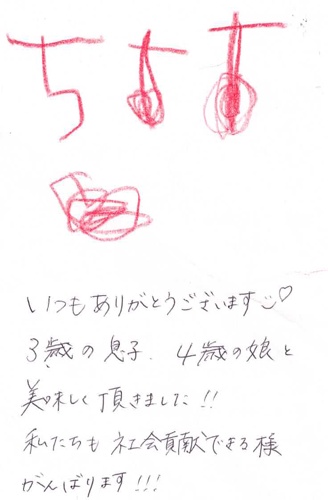 いつもありがとうございます
3歳の息子、4歳の娘と
美味しく頂きました!!
私たちも社会貢献できる様
がんばります!!!